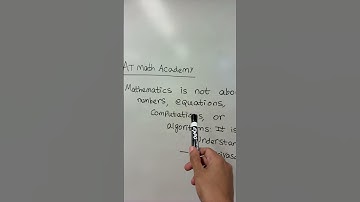 AT Math Academy
Mathematics is not abo
numbers, equations,
computations, or
algorithms: It is
understan